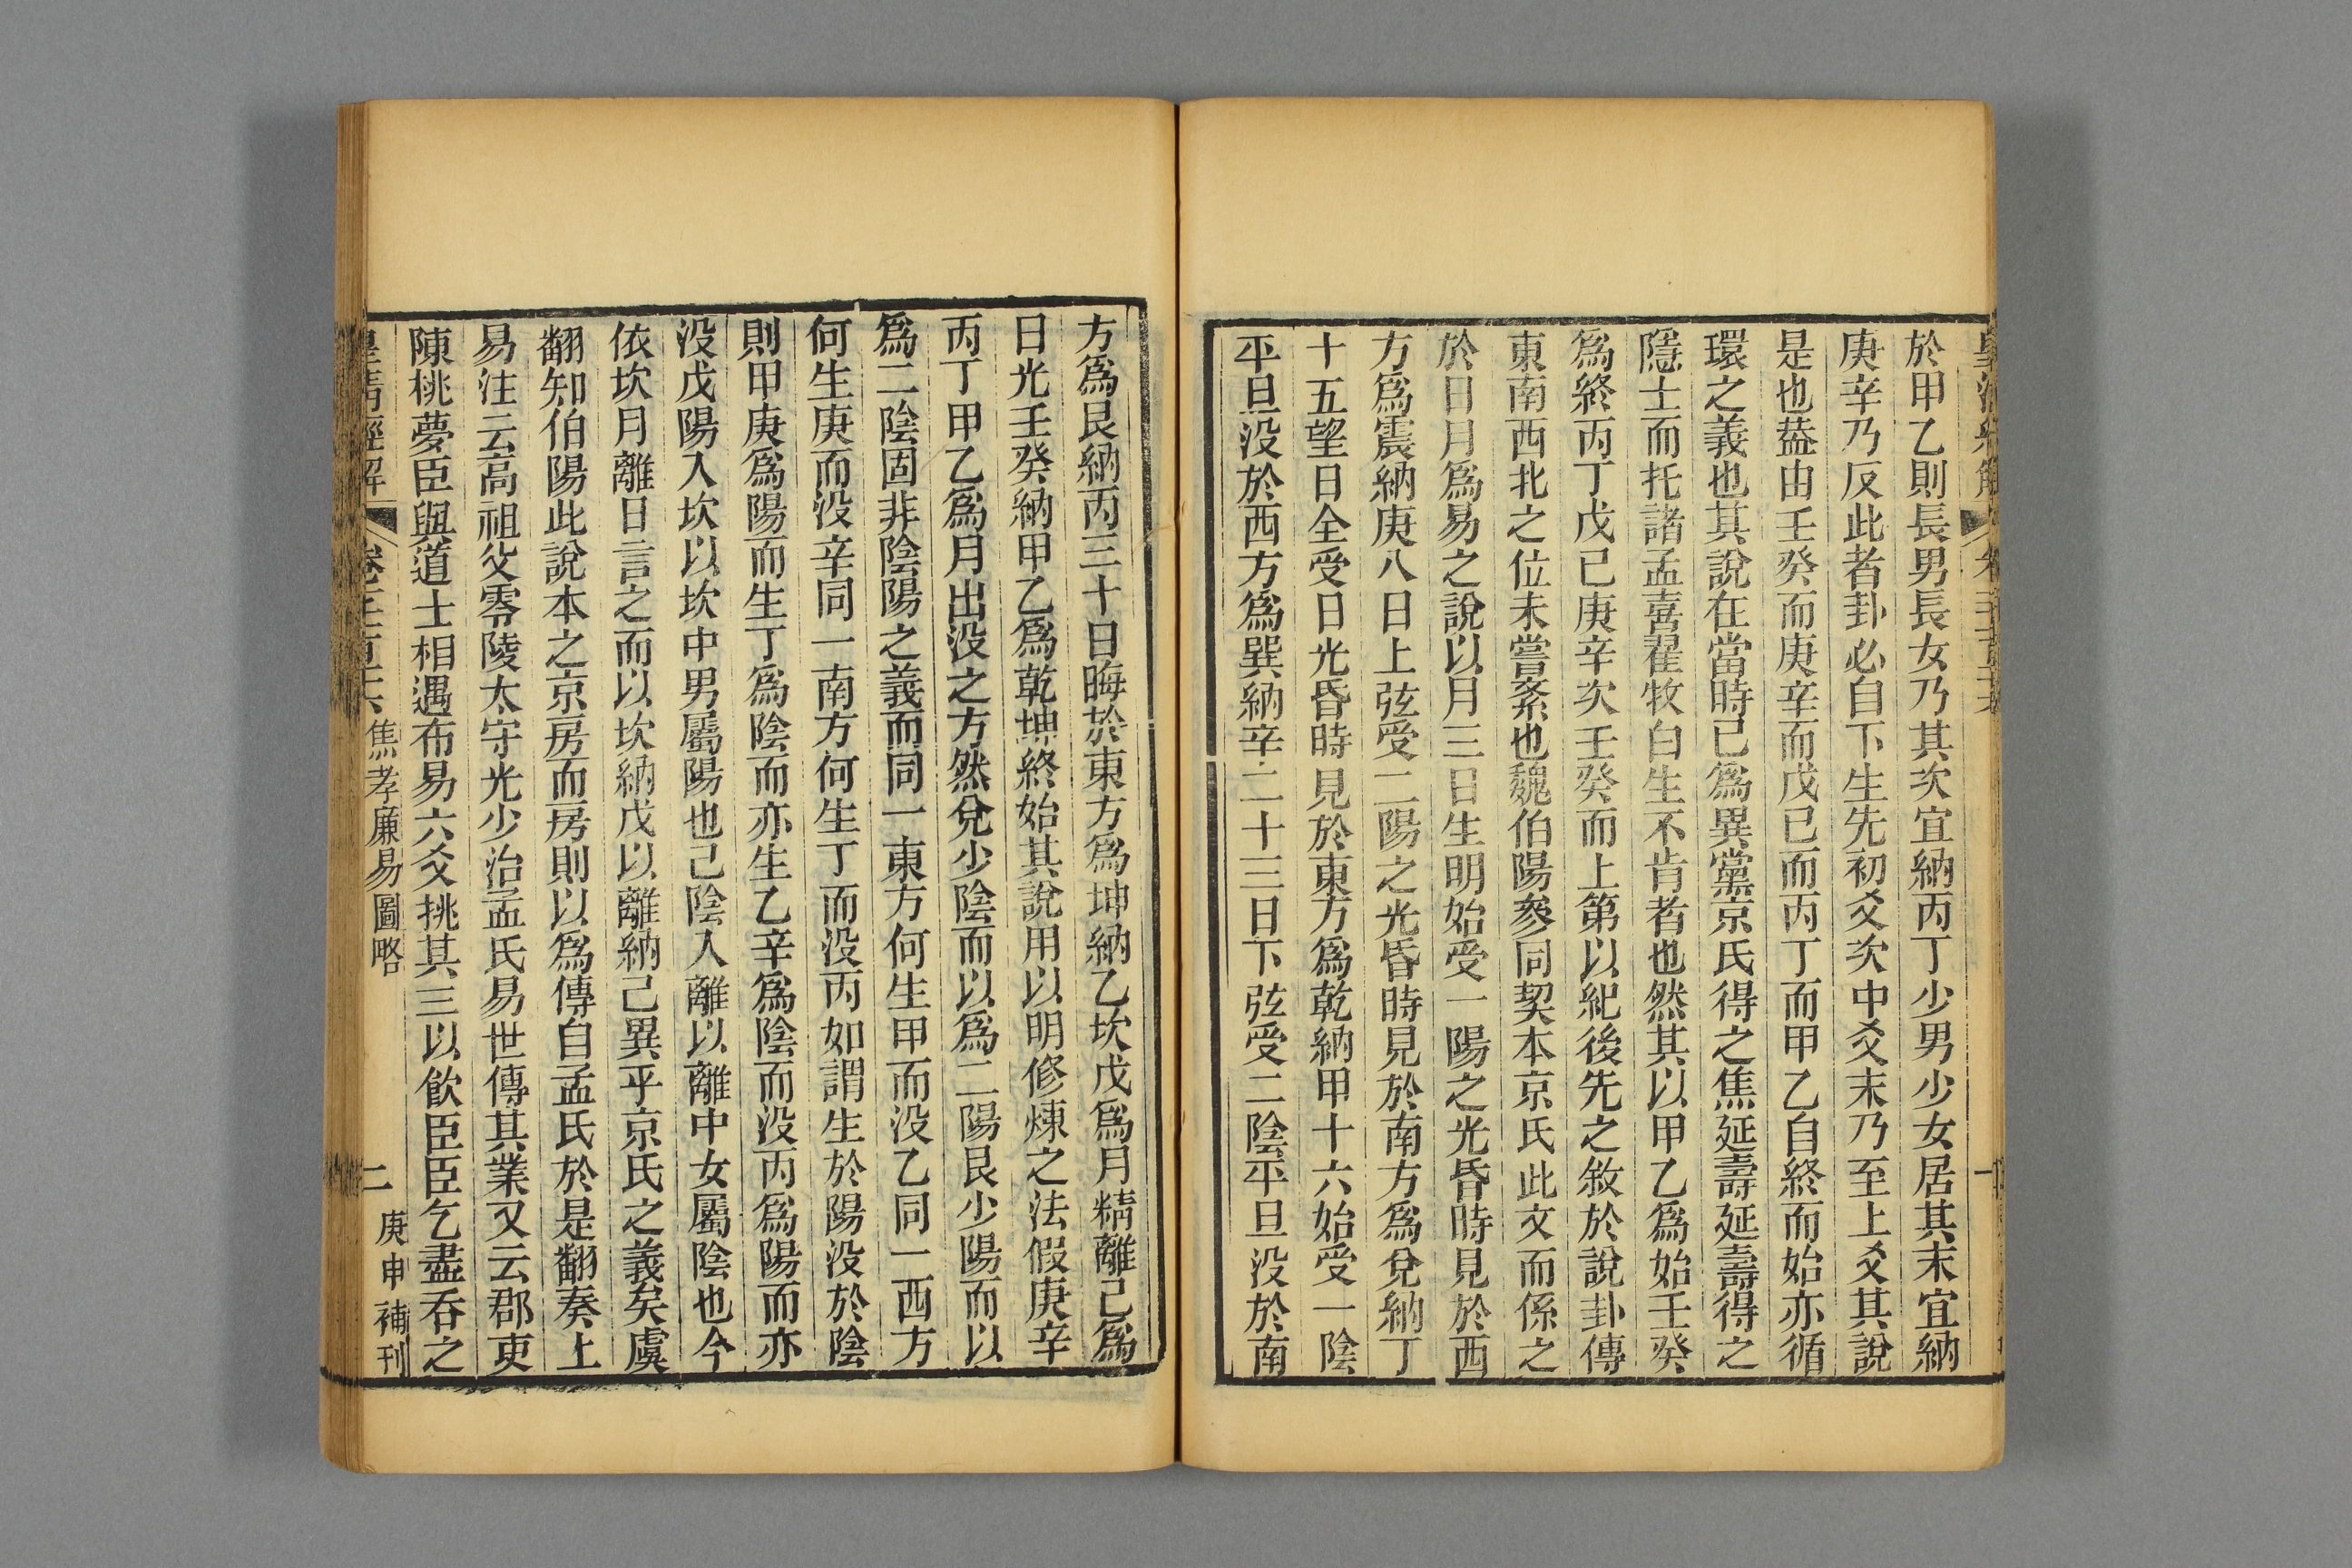 於甲乙則長男長女乃其次宜納丙丁少男少女居其末宜納
庚辛乃反此者卦必自下生先初爻次中爻末乃至上爻其說
是也葢由壬癸而庚辛而戊己而丙丁而甲乙自終而始亦循
環之義也其說在當時已爲異黨京氏得之焦延壽延壽得之
隱士而托諸孟喜翟牧白生不肯者也然其以甲乙爲始壬癸
爲終丙丁戊己庚辛次壬癸而上第以紀後先之敘於說卦傳
東南西北之位未嘗紊也魏伯陽參同契本京氏此文而係之
於日月爲易之說以月三日生明始受一陽之光昏時見於西
方爲震納庚八日上弦受二陽之光昏時見於南方爲兌納丁
十五望日全受日光昏時見於東方爲乾納甲十六始受一陰
平旦没於西方爲巽納辛二十三日下弦受二陰平旦没於南
方爲艮納丙三十日晦於東方爲坤納乙坎戊爲月精離己爲
日光壬癸納甲乙爲乾坤終始其說用以明修煉之法假庚辛
丙丁甲乙爲月出没之方然兌少陰而以爲二陽艮少陽而以
爲二陰固非陰陽之義而同一東方何生甲而没乙同一西方
何生庚而没辛同一南方何生丁而没丙如謂生於陽没於陰
則甲庚爲陽而生丁爲陰而亦生乙辛爲陰而没丙爲陽而亦
没戊陽入坎以坎中男屬陽也己陰入離以離中女屬陰也今
依坎月離日言之而以坎納戊以離納己異乎京氏之義矣虞
翻知伯陽此說本之京房而房則以爲傳自孟氏於是翻奏上
易注云高祖父零陵太守光少治孟氏易世傳其業又云郡吏
陳桃夢臣與道士相遇布易六爻挑其三以飲臣臣乞盡吞之
皇清經解
卷千百六 焦孝廉易圖略
二 庚申補刊